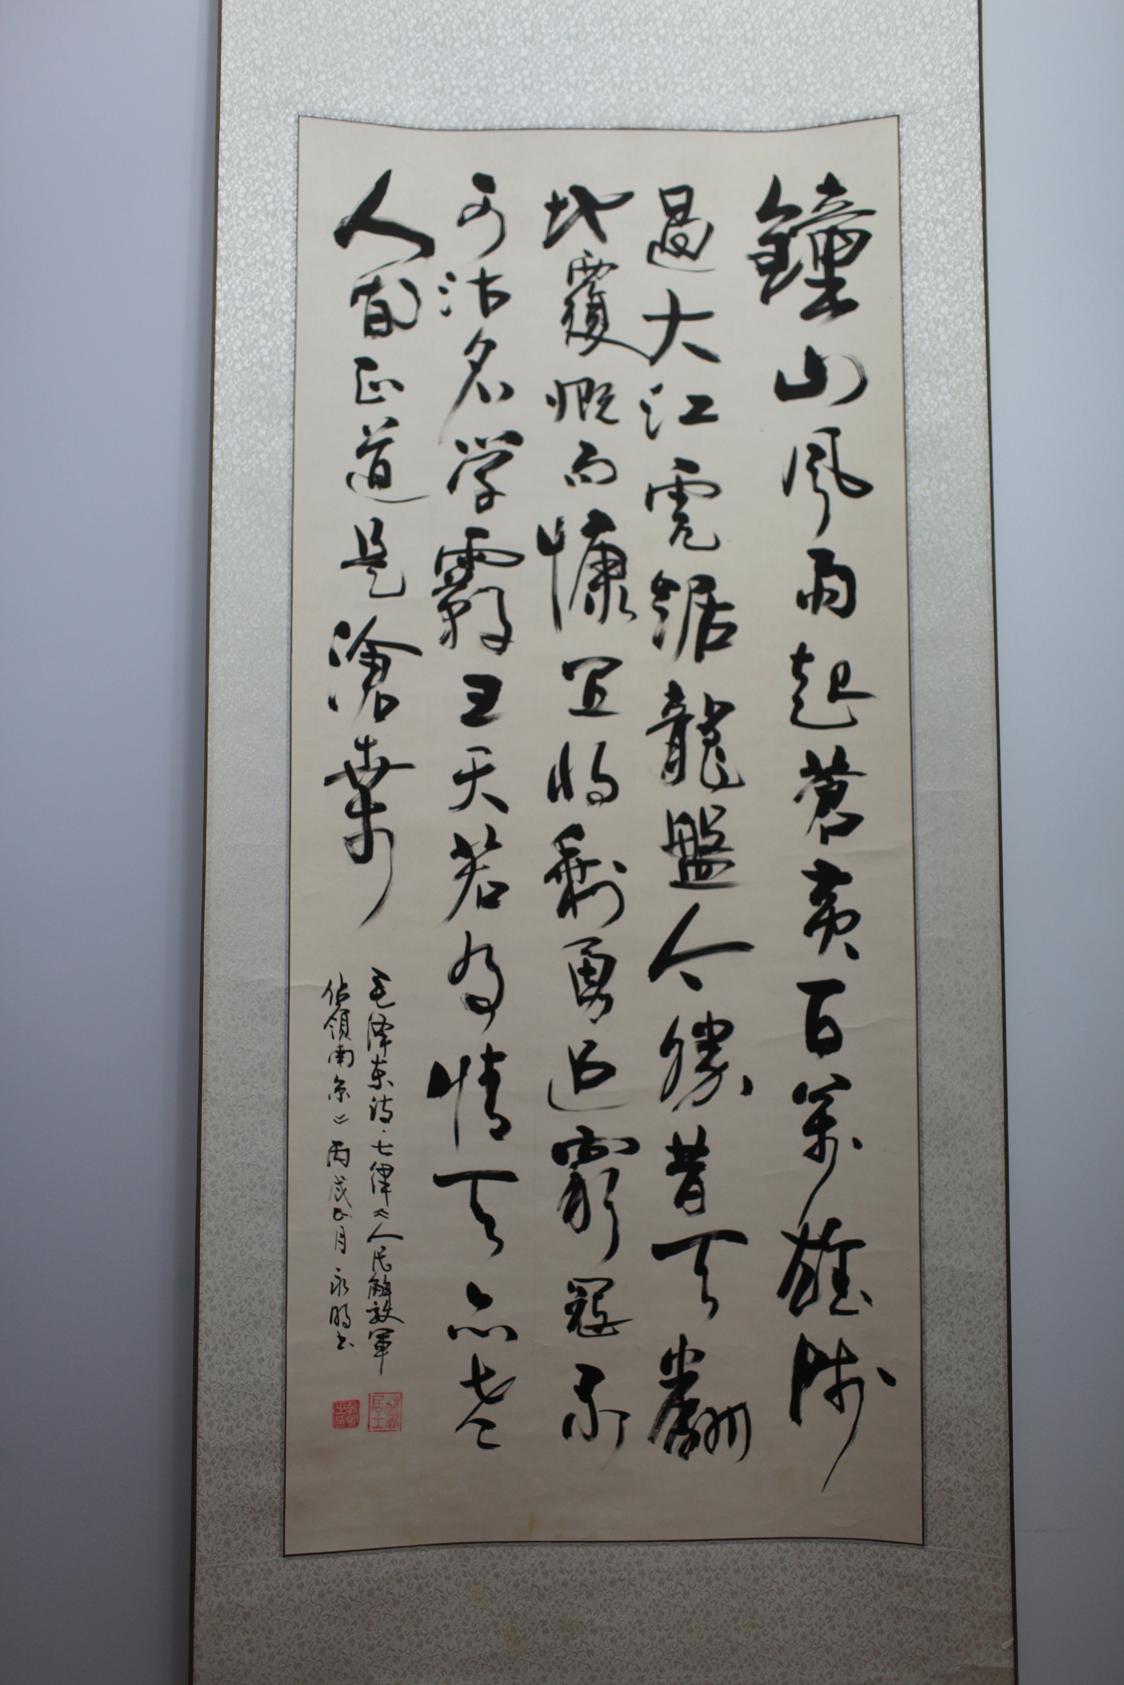 鐘山風雨起蒼黄百萬雄師
過大江虎踞龍盤今勝昔天翻
地覆慨而慷宜將剩勇追窮寇不
可沽名学霸王天若有情天亦老
人間正道是滄桑
毛泽东诗·七律《人民解放军
佔領南京》丙戌 月永明书